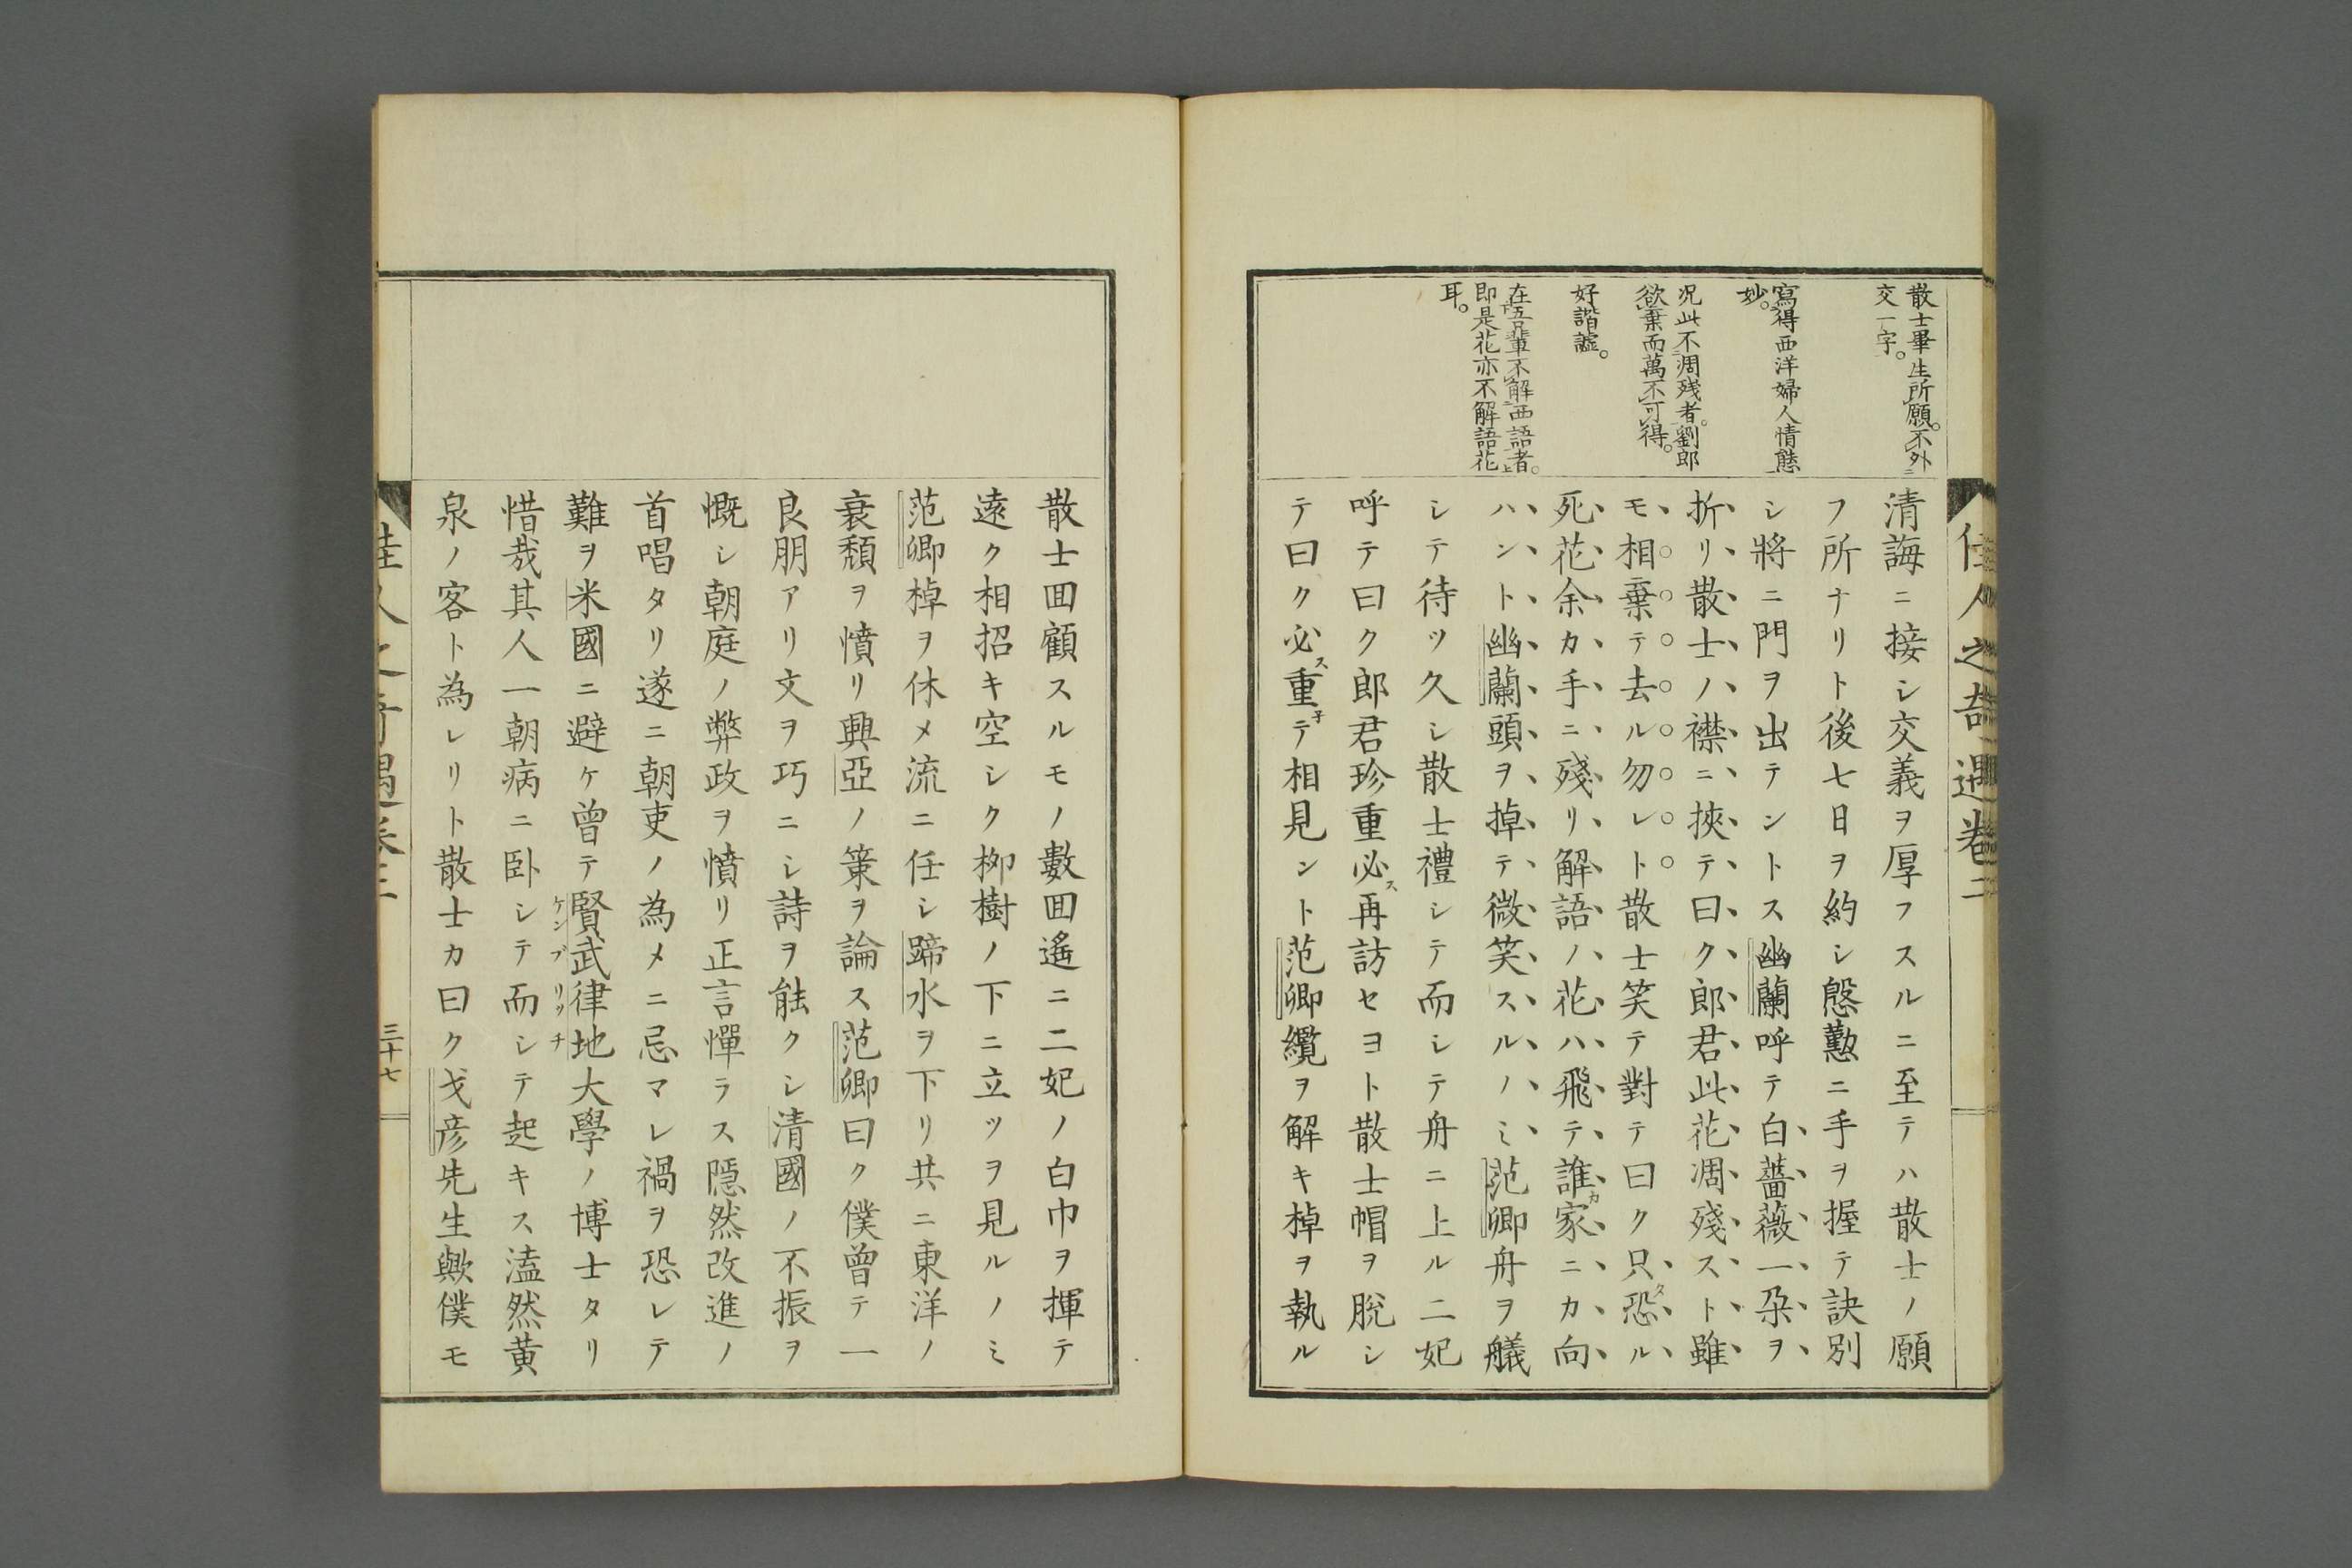 佳人之奇遇卷二
散士畢生所願。不外
交一字。
寫得西洋婦人情態
妙。
况此不凋殘者。劉郎
欲棄而萬不可得。
好諧謔。
在吾輩不解西語者。
即是花亦不解語花
耳。
清誨ニ接シ交義ヲ厚フスルニ至テハ散士ノ願
フ所ナリト後七日ヲ約シ慇懃ニ手ヲ握テ訣別
シ將ニ門ヲ出テントス幽蘭呼テ白薔薇一朶ヲ
折リ散士ノ襟ニ挾テ曰ク郎君此花凋殘スト雖
モ相棄テ去ル勿レト散士笑テ對テ曰ク只恐ル
死花余カ手ニ殘リ解語ノ花ハ飛テ誰家ニカ向
ハントト幽蘭頭ヲ掉テ微笑スルノミ范卿舟ヲ艤
シテ待ツ久シ散士禮シテ而シテ舟ニ上ル二妃
呼テ曰ク郎君珍重必ス再訪セヨト散士帽ヲ脫シ
テ曰ク必ス重子テ相見ント范卿纜ヲ解キ棹ヲ執ル
散士回顧スルモノ數回遙ニ二妃ノ白巾ヲ揮テ
遠ク相招キ空シク柳樹ノ下ニ立ツヲ見ルノミ
范卿棹ヲ休メ流ニ任シ蹄水ヲ下リ共ニ東洋ノ
衰頹ヲ憤リ興亞ノ策ヲ論ス范卿曰ク僕曾テ一
良朋アリ文ヲ巧ニシ詩ヲ能クシ清國ノ不振ヲ
慨シ朝庭ノ弊政ヲ憤リ正言憚ラス隱然改進ノ
首唱タリ遂ニ朝吏ノ為メニ忌マレ禍ヲ恐レテ
難ヲ米國ニ避ケ曾テ賢武律地大學ノ博士タリ
ケンブリッチ
惜哉其人一朝病ニ臥シテ而シテ起キス溘然黃
泉ノ客ト為レリト散士カ曰ク戈彥先生歟僕モ
三十七